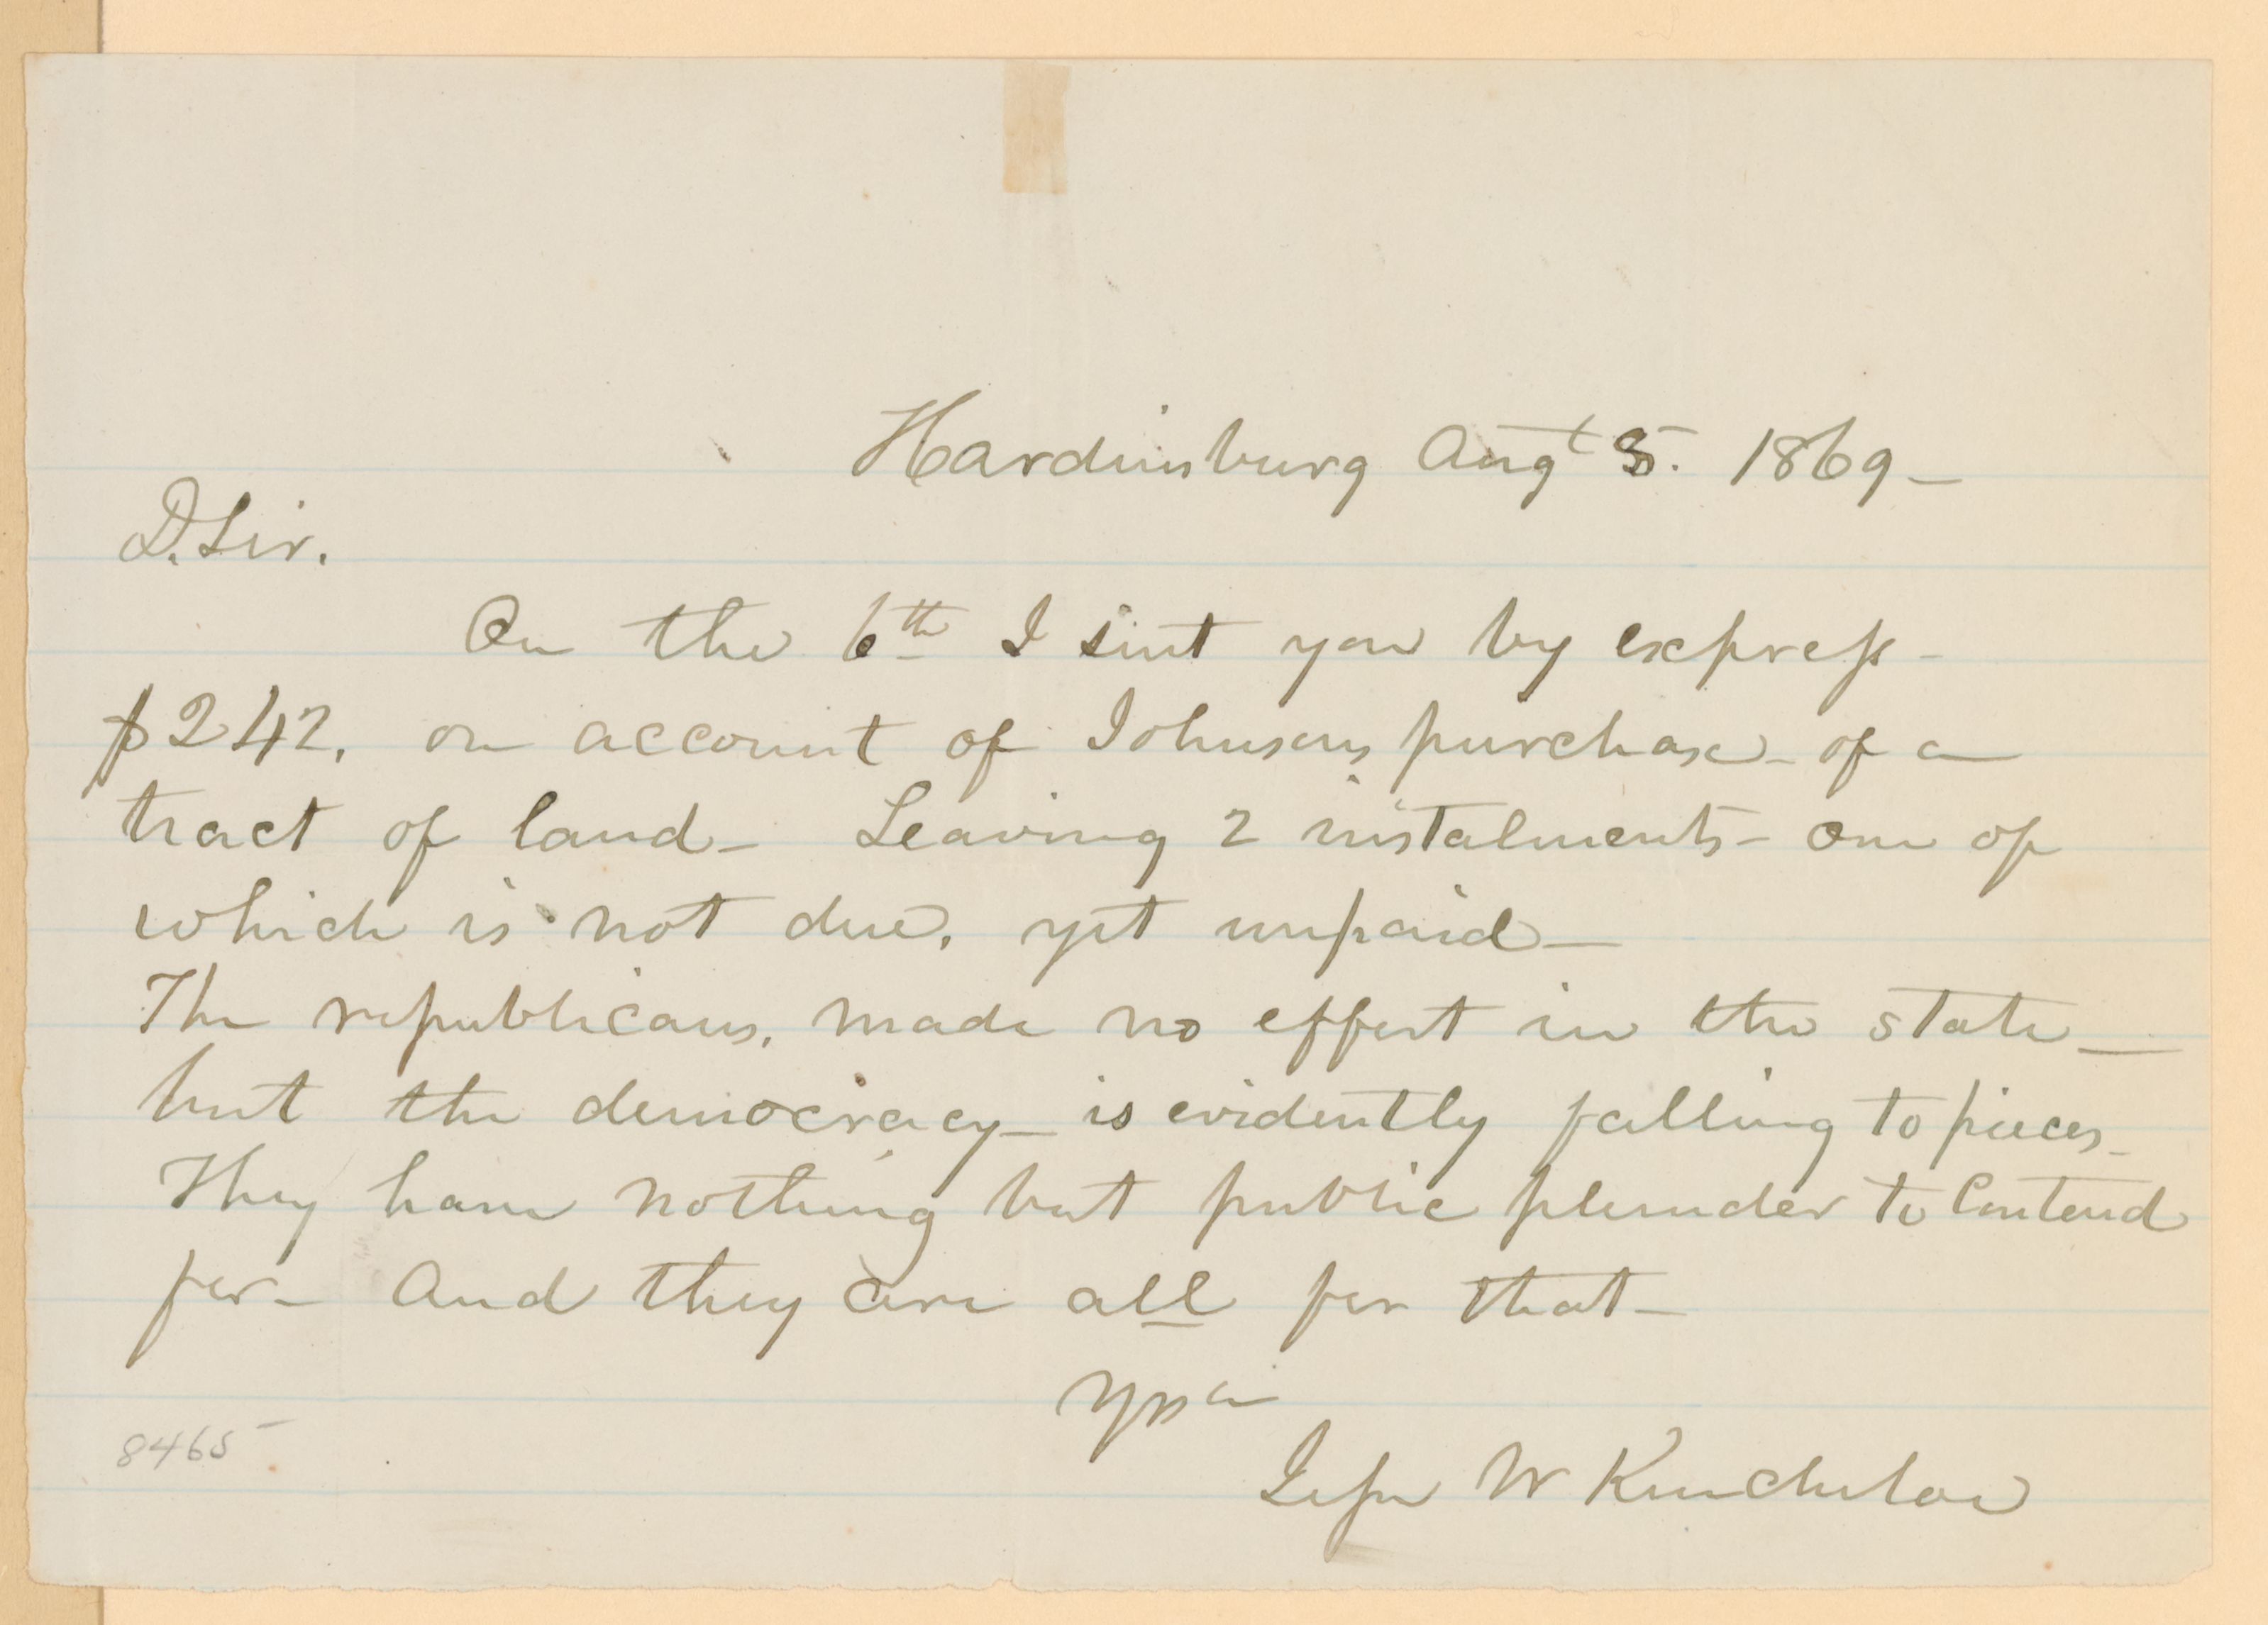 Hardinsburg Augt 8. 1869_
D. Sir.
On the 6th I sent you by express_
$242. on account of Johnsons purchase_ of a
tract of land_ Leaving 2 instalments_ one of
which is not due, yet unpaid_
The republicans, made no effort in the state_
but the democracy_ is evidently falling to pieces_
They have nothing but public plunder to Contend
for_ And they are all for that_
Yrs &c
Jesse W Kincheloe
8465